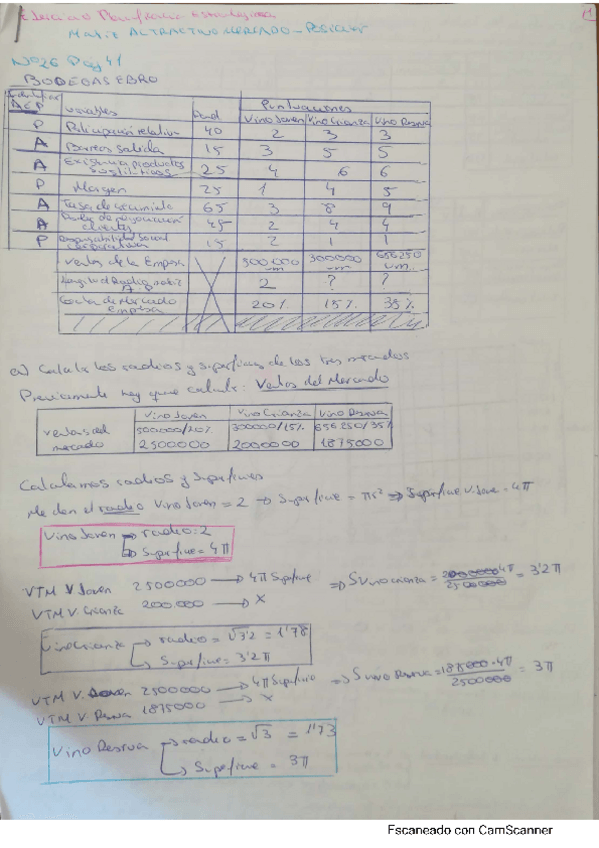 Ejercicio Planificación Estratégica 1
Matriz ATRACTIVO MERCADO - Posición
Nº26 Pag 41
BODEGAS EBRO
A ó P Variables Pond. Puntuaciones
Vino Joven Vino Crianza Vino Reserva
P Participación relativa 40 2 3 3
A Barreras salida 15 3 5 5
A Existencia productos sustitutivos 25 4 6 6
P Margen 25 1 4 5
A Tasa de crecimiento 65 3 8 9
A Poder de negociación clientes 45 2 4 4
P Responsabilidad Social corporativa 15 2 1 1
Ventas de la Empresa 500000 um 300000 um 656250 um
Longitud Radio matriz 2 ? ?
Cuota de Mercado empresa 20% 15% 35%
a) Calcula los radios y superficies de los tres mercados
Previamente hay que calcular: Ventas del Mercado
Vino Joven Vino Crianza Vino Reserva
ventas del 500000/20% 300000/15% 656250/35%
mercado 2500000 2000000 1875000
Calculamos radios y Superficies
Me dan el radio Vino Joven = 2 → Superficie = πr² ⇒ Superficie V. Joven = 4π
Vino Joven → radio = 2
→ Superficie = 4π
VTM V Joven 2500000 → 4π Superficie ⇒ S Vino crianza = 2000000·4π / 2500000 = 3'2π
VTM V. Crianza 200000 → x
Vino Crianza → radio = √3'2 = 1'78
→ Superficie = 3'2π
VTM V. Joven 2500000 → 4π Superficie ⇒ S vino Reserva = 187000·4π / 2500000 = 3π
VTM V. Reserva 1875000 → x
Vino Reserva → radio = √3 = 1'73
→ Superficie = 3π
Escaneado con CamScanner